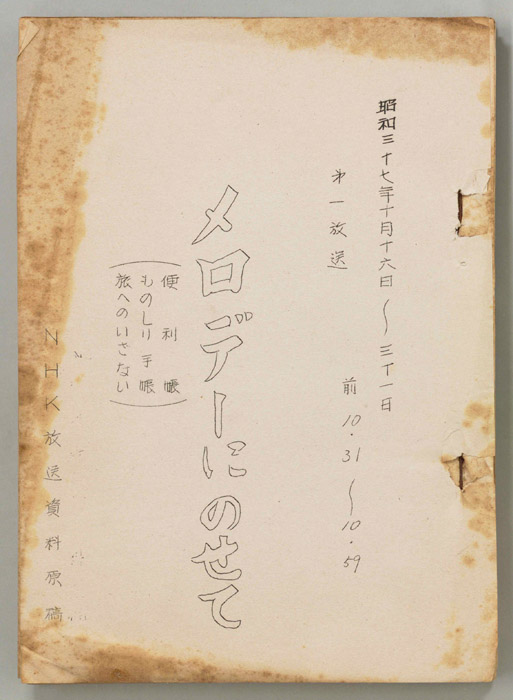 昭和三十七年十月十六日～三十一日
第一放送
前 10.31～10.59
メロデーにのせて
便利帳
ものしり手帳
旅へのいざない
NHK放送資料原稿